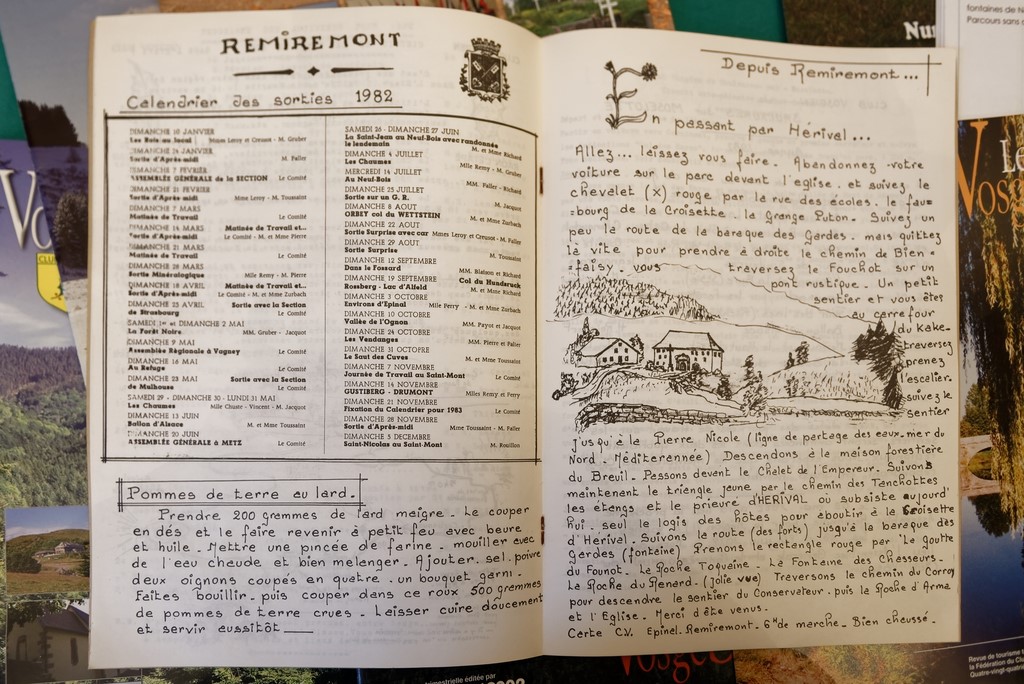 REMIREMONT
Calendrier des sorties 1982
DIMANCHE 10 JANVIER
Les Rois au local Mmes Leroy et Creusot - M. Gruber
DIMANCHE 24 JANVIER
Sortie d'Après-midi M. Faller
DIMANCHE 7 FEVRIER
ASSEMBLÉE GÉNÉRALE de la SECTION Le Comité
DIMANCHE 21 FEVRIER
Sortie d'Après-midi Mme Leroy - M. Toussaint
DIMANCHE 7 MARS
Matinée de Travail Le Comité
DIMANCHE 14 MARS Matinée de Travail et...
Sortie d'Après-midi Le Comité - M. et Mme Pierre
DIMANCHE 21 MARS
Matinée de Travail Le Comité
DIMANCHE 28 MARS
Sortie Minéralogique Mlle Remy - M. Pierre
DIMANCHE 18 AVRIL Matinée de Travail et...
Sortie d'Après-midi Le Comité - M. et Mme Zurbach
DIMANCHE 25 AVRIL Sortie avec la Section
de Strasbourg Le Comité
SAMEDI 1er et DIMANCHE 2 MAI
La Forêt Noire MM. Gruber - Jacquot
DIMANCHE 9 MAI
Assemblée Régionale à Vagney Le Comité
DIMANCHE 16 MAI
Au Refuge Le Comité
DIMANCHE 23 MAI Sortie avec la Section
de Mulhouse Le Comité
SAMEDI 29 - DIMANCHE 30 - LUNDI 31 MAI
Les Chaumes Mlle Chuste - Vincent - M. Jacquot
DIMANCHE 13 JUIN
Ballon d'Alsace M. et Mme Toussaint
DIMANCHE 20 JUIN
ASSEMBLÉE GÉNÉRALE à METZ Le Comité
SAMEDI 26 - DIMANCHE 27 JUIN
La Saint-Jean au Neuf-Bois avec randonnée
le lendemain M. et Mme Richard
DIMANCHE 4 JUILLET
Les Chaumes Mlle Remy - M. Gruber
MERCREDI 14 JUILLET
Au Neuf-Bois MM. Faller - Richard
DIMANCHE 25 JUILLET
Sortie sur un G. R. M. Jacquot
DIMANCHE 8 AOUT
ORBEY col du WETTSTEIN M. et Mme Zurbach
DIMANCHE 22 AOUT
Sortie Surprise avec car Mmes Leroy et Creusot - M. Faller
DIMANCHE 29 AOUT
Sortie Surprise M. Toussaint
DIMANCHE 12 SEPTEMBRE
Dans le Fossard MM. Blaison et Richard
DIMANCHE 19 SEPTEMBRE Col du Hundsruck
Rossberg - Lac d'Alfeld M. et Mme Richard
DIMANCHE 3 OCTOBRE
Environs d'Epinal Mlle Ferry - M. et Mme Zurbach
DIMANCHE 10 OCTOBRE
Vallée de l'Ognon MM. Payot et Jacquot
DIMANCHE 24 OCTOBRE
Les Vendanges MM. Pierre et Faller
DIMANCHE 31 OCTOBRE
Le Saut des Cuves M. et Mme Toussaint
DIMANCHE 7 NOVEMBRE
Journée de Travail au Saint-Mont Le Comité
DIMANCHE 14 NOVEMBRE
GUSTIBERG - DRUMONT Mlles Remy et Ferry
DIMANCHE 21 NOVEMBRE
Fixation du Calendrier pour 1983 Le Comité
DIMANCHE 28 NOVEMBRE
Sortie d'Après-midi Mme Toussaint - M. Faller
DIMANCHE 5 DECEMBRE
Saint-Nicolas au Saint-Mont M. Rouillon
Pommes de terre au lard.
Prendre 200 grammes de lard maigre. Le couper
en dés et le faire revenir à petit feu avec beurre
et huile. Mettre une pincée de farine. mouiller avec
de l'eau chaude et bien melanger. Ajouter. sel. poivre
deux oignons coupés en quatre. un bouquet garni.
Faites bouillir. puis couper dans ce roux 500 grammes
de pommes de terre crues. Laisser cuire doucement
et servir aussitôt
Depuis Remiremont...
En passant par Hérival...
Allez... laissez vous faire. Abandonnez votre
voiture sur le parc devant l'eglise. et suivez le
chevalet (X) rouge par la rue des écoles. le fau=
=bourg de la Croisette. la Grange Puton. Suivez un
peu la route de la baraque des Gardes. mais quittez
là vite pour prendre à droite le chemin de Bien=
=faisy. vous traversez le Fouchot sur un
pont rustique. Un petit
sentier et vous êtes
au carrefour
du kake-
traversez
prenez
l'escalier.
suivez le
sentier
jusqu'à la Pierre Nicole (ligne de partage des eaux-mer du
Nord. Méditerannée) Descendons à la maison forestière
du Breuil. Passons devant le Chalet de l'Empereur. Suivons
maintenant le triangle jaune par le chemin des Tanchottes
les étangs et le prieuré d'HERIVAL où subsiste aujourd'
hui. seul le logis des hôtes pour aboutir à la Croisette
d'Hérival. Suivons la route (des forts) jusqu'à la baraque des
Gardes (fontaine) Prenons le rectangle rouge par la Goutte
du Founot. La Roche Toquaine. La Fontaine des Chasseurs.
La Roche du Renard. (jolie vue) Traversons le chemin du Corroy
pour descendre le sentier du Conservateur. puis la Roche d'Arma
et l'Eglise. Merci d'être venus.
Carte C.V. Epinal. Remiremont. 6H de marche. Bien chaussé.
fontaines de
Parcours sans
Revue de tourisme
la Fédération du